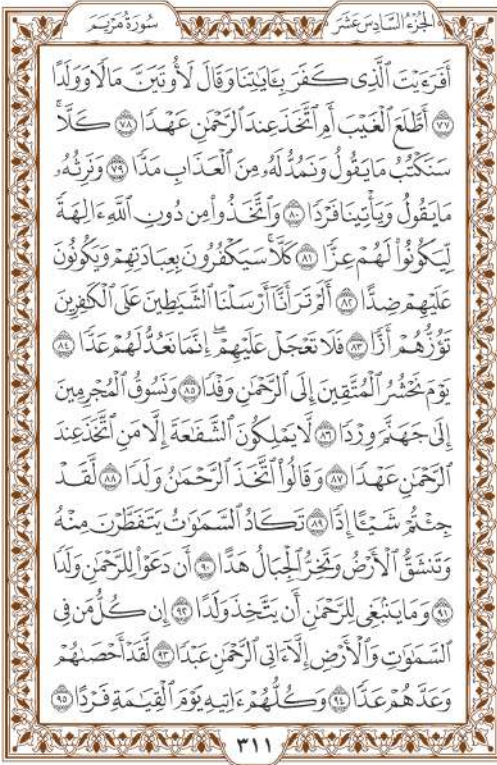 الجُزْءُ السَّادِسَ عَشَرَ سُورَةُ مَرْيَمَ
أَفَرَءَيْتَ ٱلَّذِى كَفَرَ بِـَٔايَـٰتِنَا وَقَالَ لَأُوتَيَنَّ مَالًا وَوَلَدًا
٧٧ أَطَّلَعَ ٱلْغَيْبَ أَمِ ٱتَّخَذَ عِندَ ٱلرَّحْمَـٰنِ عَهْدًا ٧٨ كَلَّا ۚ
سَنَكْتُبُ مَا يَقُولُ وَنَمُدُّ لَهُۥ مِنَ ٱلْعَذَابِ مَدًّا ٧٩ وَنَرِثُهُۥ
مَا يَقُولُ وَيَأْتِينَا فَرْدًا ٨٠ وَٱتَّخَذُوا۟ مِن دُونِ ٱللَّهِ ءَالِهَةً
لِّيَكُونُوا۟ لَهُمْ عِزًّا ٨١ كَلَّا ۚ سَيَكْفُرُونَ بِعِبَادَتِهِمْ وَيَكُونُونَ
عَلَيْهِمْ ضِدًّا ٨٢ أَلَمْ تَرَ أَنَّآ أَرْسَلْنَا ٱلشَّيَـٰطِينَ عَلَى ٱلْكَـٰفِرِينَ
تَؤُزُّهُمْ أَزًّا ٨٣ فَلَا تَعْجَلْ عَلَيْهِمْ ۖ إِنَّمَا نَعُدُّ لَهُمْ عَدًّا ٨٤
يَوْمَ نَحْشُرُ ٱلْمُتَّقِينَ إِلَى ٱلرَّحْمَـٰنِ وَفْدًا ٨٥ وَنَسُوقُ ٱلْمُجْرِمِينَ
إِلَىٰ جَهَنَّمَ وِرْدًا ٨٦ لَّا يَمْلِكُونَ ٱلشَّفَـٰعَةَ إِلَّا مَنِ ٱتَّخَذَ عِندَ
ٱلرَّحْمَـٰنِ عَهْدًا ٨٧ وَقَالُوا۟ ٱتَّخَذَ ٱلرَّحْمَـٰنُ وَلَدًا ٨٨ لَّقَدْ
جِئْتُمْ شَيْـًٔا إِدًّا ٨٩ تَكَادُ ٱلسَّمَـٰوَٰتُ يَتَفَطَّرْنَ مِنْهُ
وَتَنشَقُّ ٱلْأَرْضُ وَتَخِرُّ ٱلْجِبَالُ هَدًّا ٩٠ أَن دَعَوْا۟ لِلرَّحْمَـٰنِ وَلَدًا
٩١ وَمَا يَنۢبَغِى لِلرَّحْمَـٰنِ أَن يَتَّخِذَ وَلَدًا ٩٢ إِن كُلُّ مَن فِى
ٱلسَّمَـٰوَٰتِ وَٱلْأَرْضِ إِلَّآ ءَاتِى ٱلرَّحْمَـٰنِ عَبْدًا ٩٣ لَّقَدْ أَحْصَىٰهُمْ
وَعَدَّهُمْ عَدًّا ٩٤ وَكُلُّهُمْ ءَاتِيهِ يَوْمَ ٱلْقِيَـٰمَةِ فَرْدًا ٩٥
٣١١